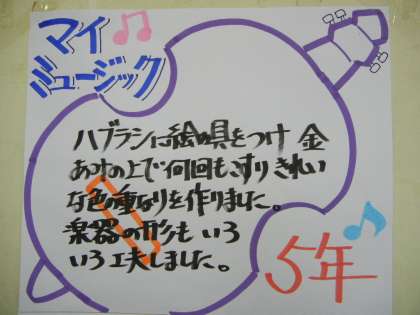 マイ
ミュージック
ハブラシに絵の具をつけ 金
あみの上で何回もこすり きれい
な色の重なりを作りました。
楽器の形も いろ
いろ工夫しました。
5年